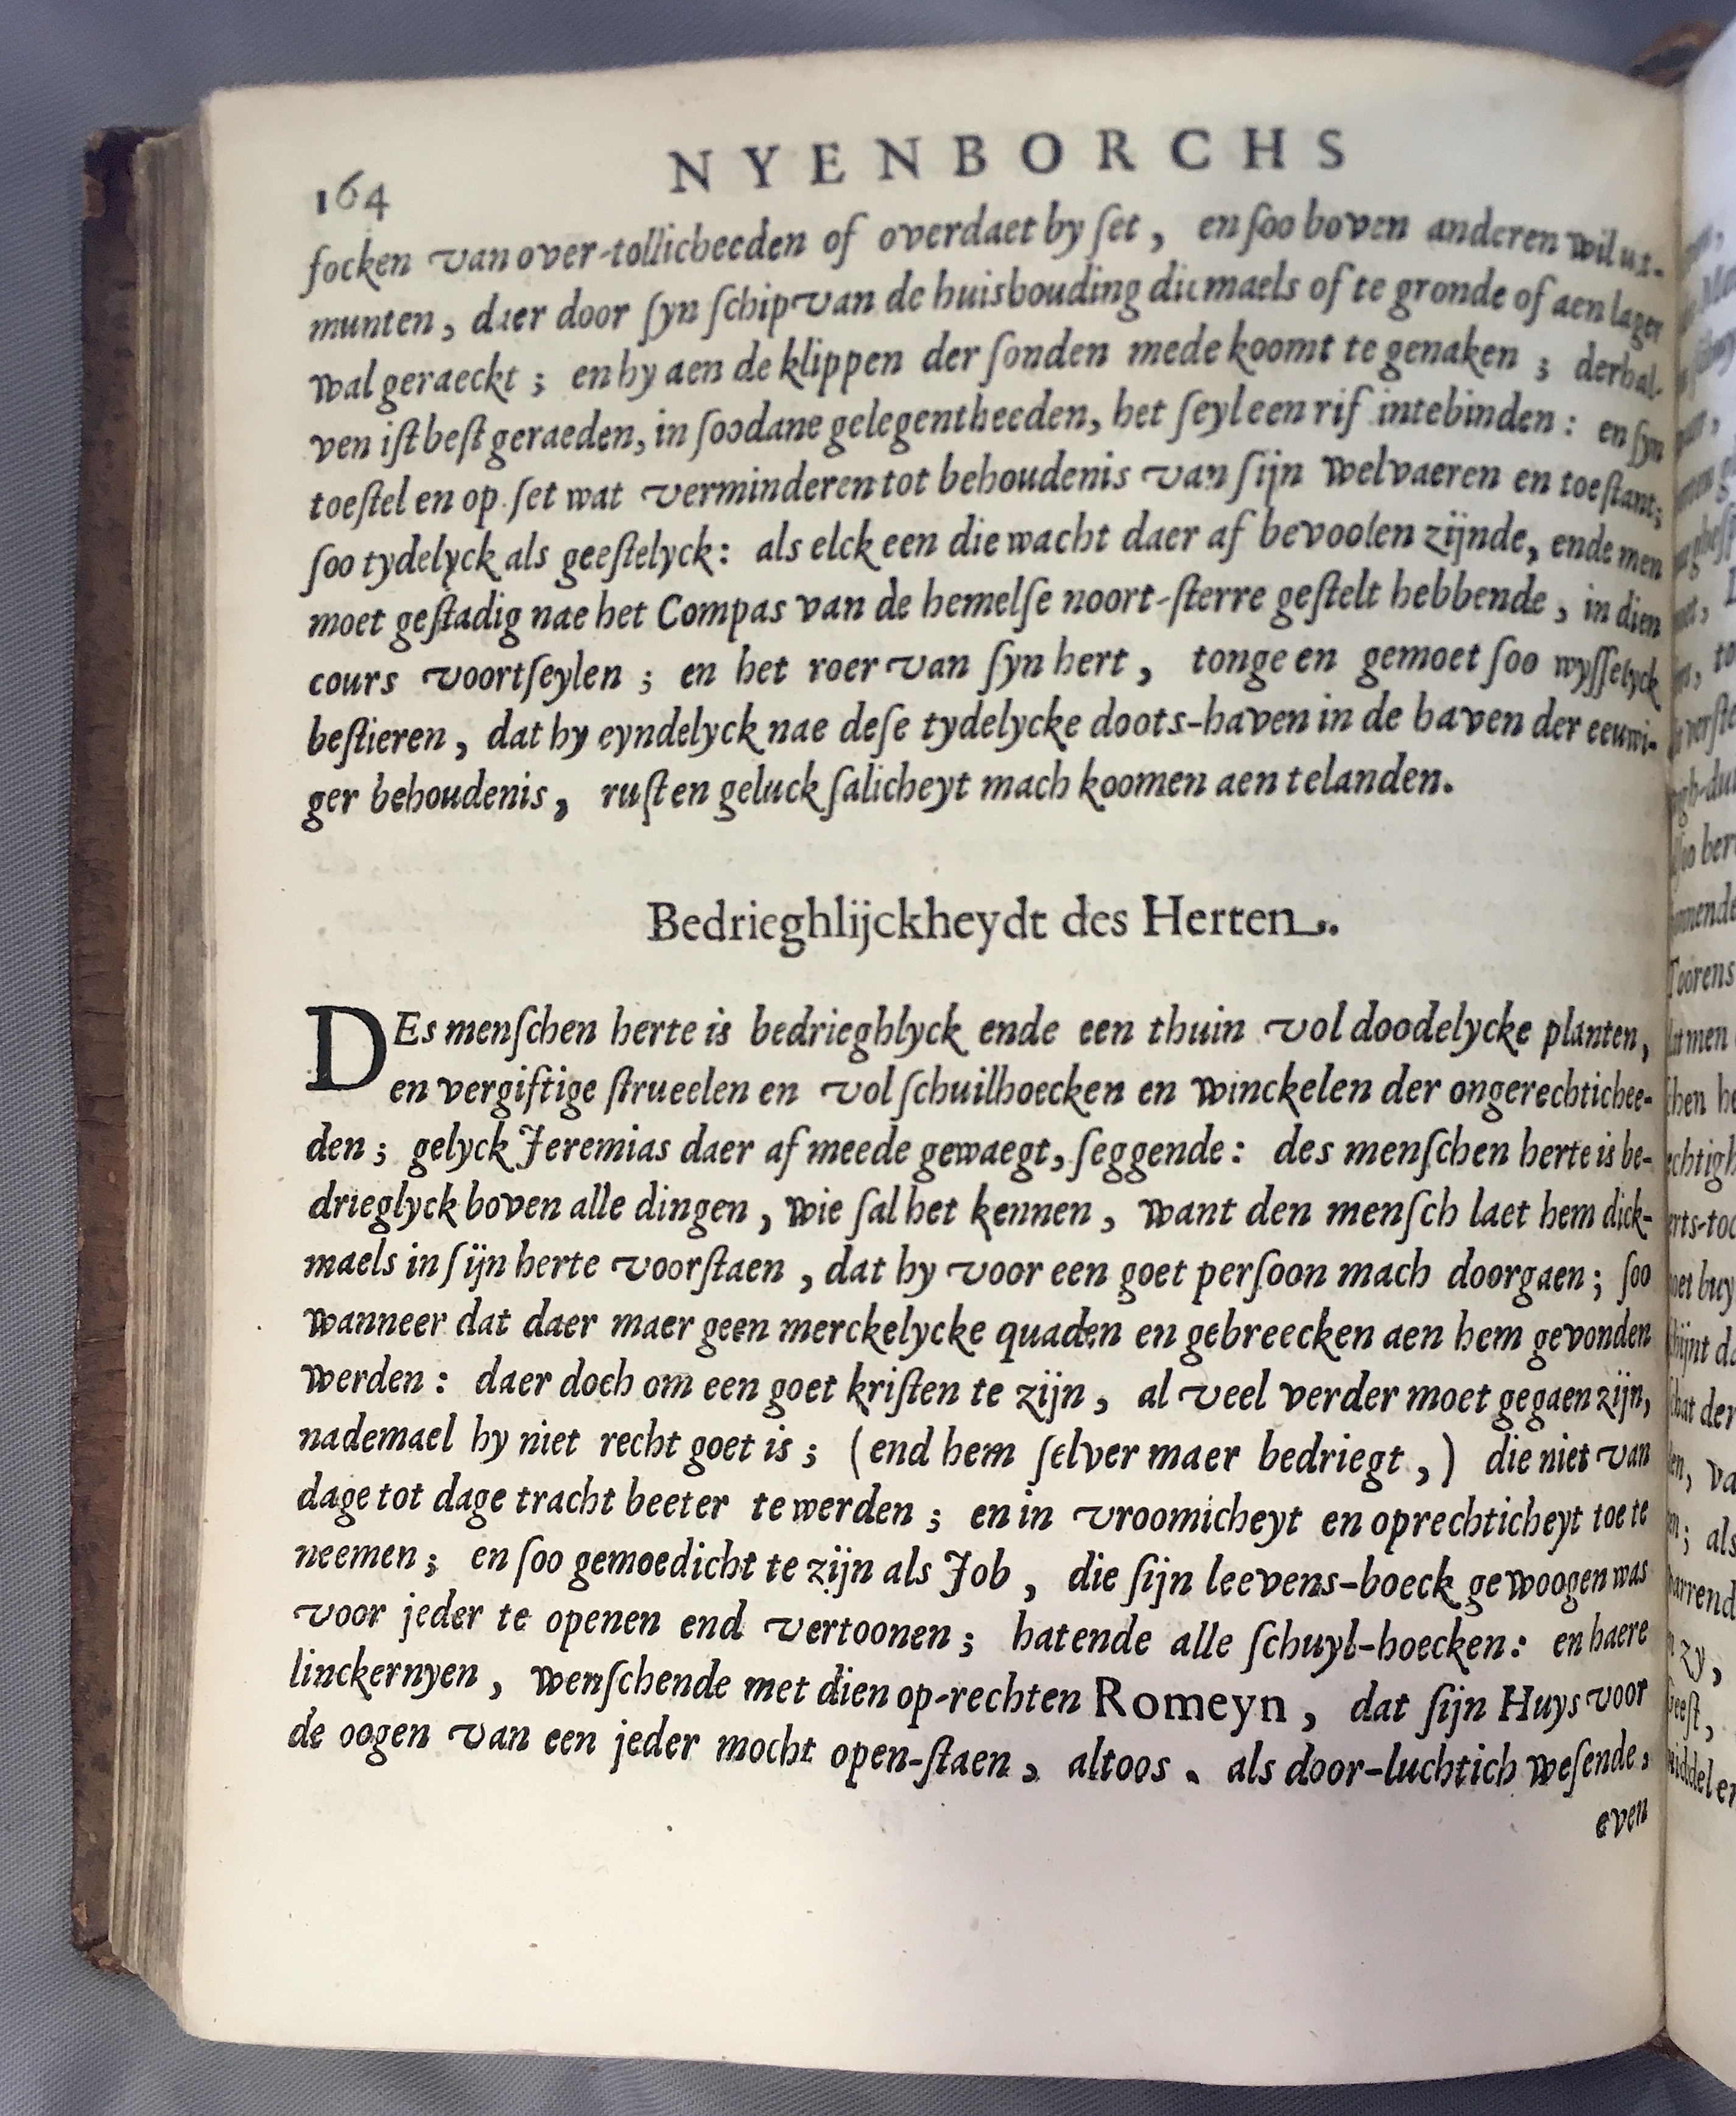 164 NYENBORCHS
focken van over-tollicheeden of overdaet by ſet, en ſoo boven anderen wil uyt-
munten, daer door ſyn ſchip van de huishouding dicmaels of te gronde of aen lager
wal geraeckt; en hy aen de klippen der ſonden mede koomt te genaken; derhal-
ven iſt beſt geraeden, in ſoodane gelegentheeden, het ſeyl een rif intebinden: en ſyn
toeſtel en op ſet wat verminderen tot behoudenis van ſijn welvaeren en toeſtant;
ſoo tydelyck als geeſtelyck: als elck een die wacht daer af bevoolen zijnde, ende men
moet geſtadig nae het Compas van de hemelſe noort-ſterre geſtelt hebbende, in dien
cours voortſeylen; en het roer van ſyn hert, tonge en gemoet ſoo wyſſelyck
beſtieren, dat hy eyndelyck nae deſe tydelycke doots-haven in de haven der eeuwi-
ger behoudenis, ruſt en geluck ſalicheyt mach koomen aen telanden.
Bedrieghlijckheydt des Herten.
DEs menſchen herte is bedrieghlyck ende een thuin vol doodelycke planten,
en vergiftige ſtrueelen en vol ſchuilhoecken en winckelen der ongerechtichee-
den; gelyck Jeremias daer af meede gewaegt, ſeggende: des menſchen herte is be-
drieglyck boven alle dingen, wie ſal het kennen, want den menſch laet hem dick-
maels in ſijn herte voorſtaen, dat hy voor een goet perſoon mach doorgaen; ſoo
wanneer dat daer maer geen merckelycke quaden en gebreecken aen hem gevonden
werden: daer doch om een goet kriſten te zijn, al veel verder moet gegaen zijn,
nademael hy niet recht goet is; (end hem ſelver maer bedriegt,) die niet van
dage tot dage tracht beeter te werden; en in vroomicheyt en oprechticheyt toe te
neemen; en ſoo gemoedicht te zijn als Job, die ſijn leevens-boeck gewoogen was
voor jeder te openen end vertoonen; hatende alle ſchuyl-hoecken: en haere
linckernyen, wenſchende met dien op-rechten Romeyn, dat ſijn Huys voor
de oogen van een jeder mocht open-ſtaen, altoos, als door-luchtich weſende,
even